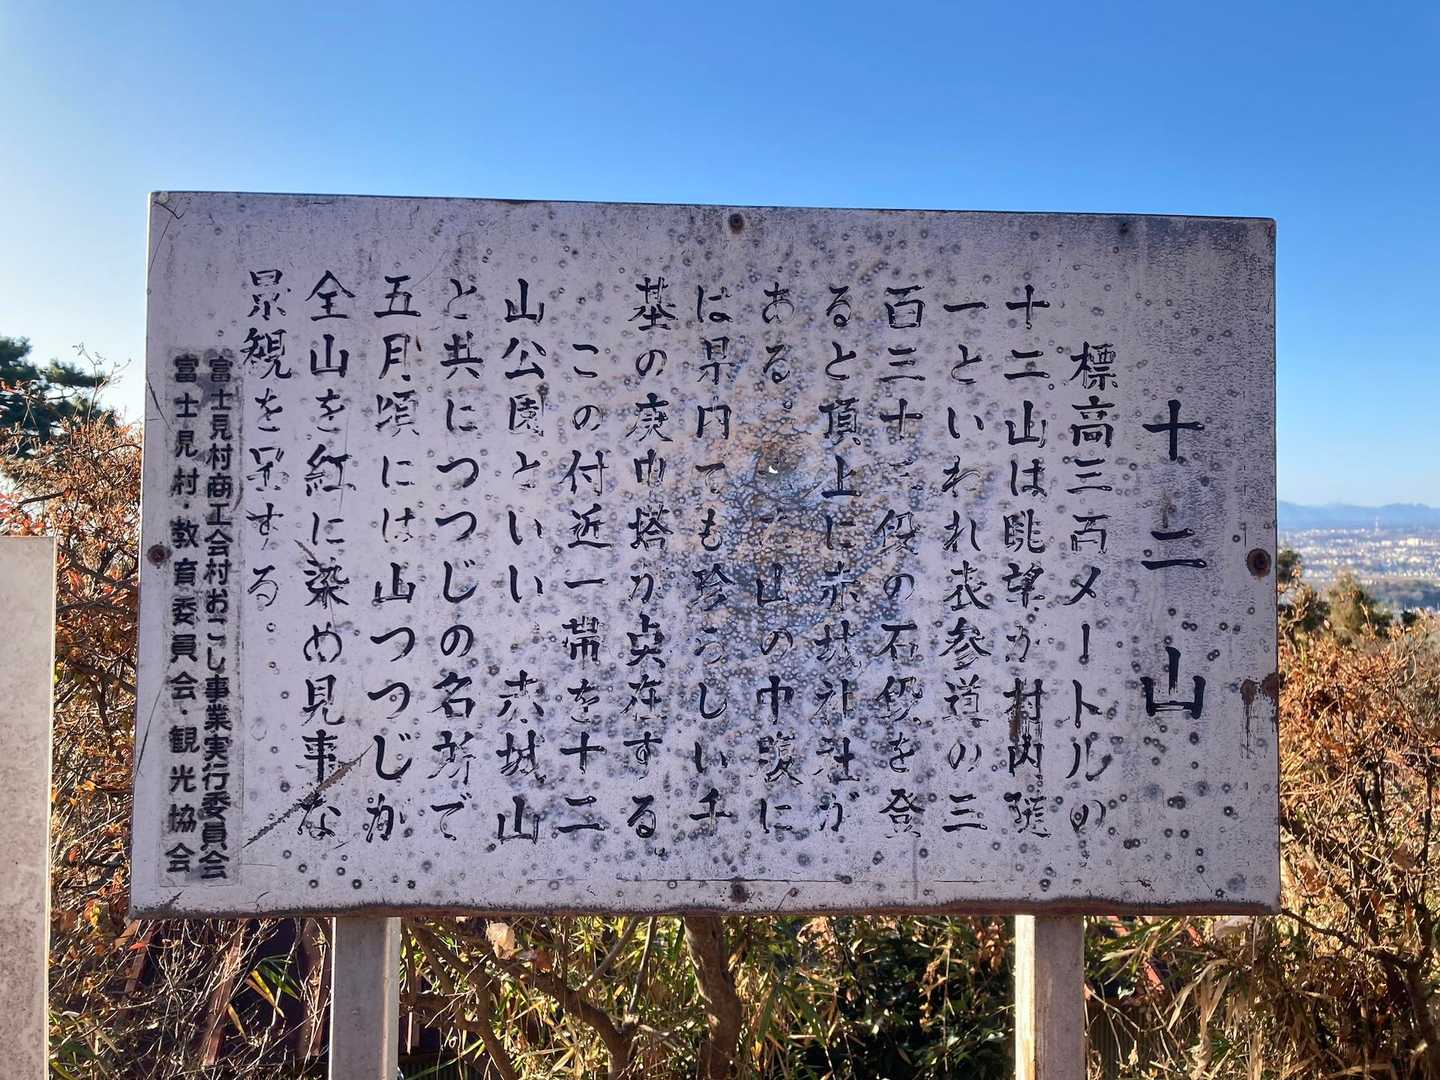 十二山
標高三百メートルの
十二山は眺望が村内随
一といわれ表参道の三
百三十二段の石段を登
ると頂上に赤城神社が
ある。また山の中腹に
は県内でも珍らしい千
基の庚申塔が点在する
この付近一帯を十二
山公園といい 赤城山
と共につつじの名所で
五月頃には山つつじが
全山を紅に染め見事な
景観を呈する。
富士見村商工会村おこし事業実行委員会
富士見村・教育委員会・観光協会